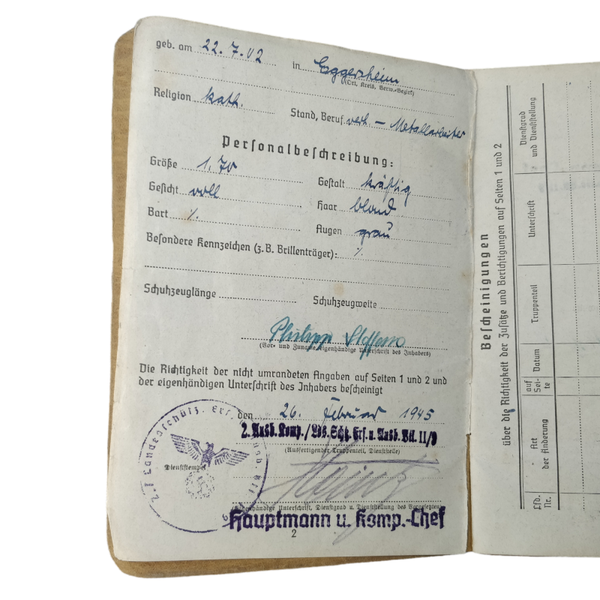 geb. am 22.7.02 in Eggersheim
(Ort, Kreis, Verw.-Bezirk)
Religion kath. Stand, Beruf verh. – Metallarbeiter
Personalbeschreibung:
Größe 1,70 Gestalt kräftig
Gesicht voll Haar blond
Bart ٪ Augen grau
Besondere Kennzeichen (z.B. Brillenträger): ٪
Schuhzeuglänge Schuhzeugweite
Philipp Steffens
(Vor- und Zuname, eigenhändige Unterschrift des Inhabers)
Die Richtigkeit der nicht umrandeten Angaben auf Seiten 1 und 2 und
der eigenhändigen Unterschrift des Inhabers bescheinigt
den 26. Februar 1945
2. Ausb. Komp./Lds. Schtz. Ers. u. Ausb. Btl. II/6
(Ausfertigender Truppenteil, Dienststelle)
Landesschütz. Ers.
Dienststempel
(Eigenhändige Unterschrift, Dienstgrad u. Dienststellung des Vorgesetzten)
Hauptmann u. Komp.-Chef
2
Bescheinigungen
über die Richtigkeit der Zusätze und Berichtigungen auf Seiten 1 und 2
Lfd. Nr.
Art der Änderung
auf Seite
Datum
Truppenteil
Unterschrift
Dienstgrad und Dienststellung